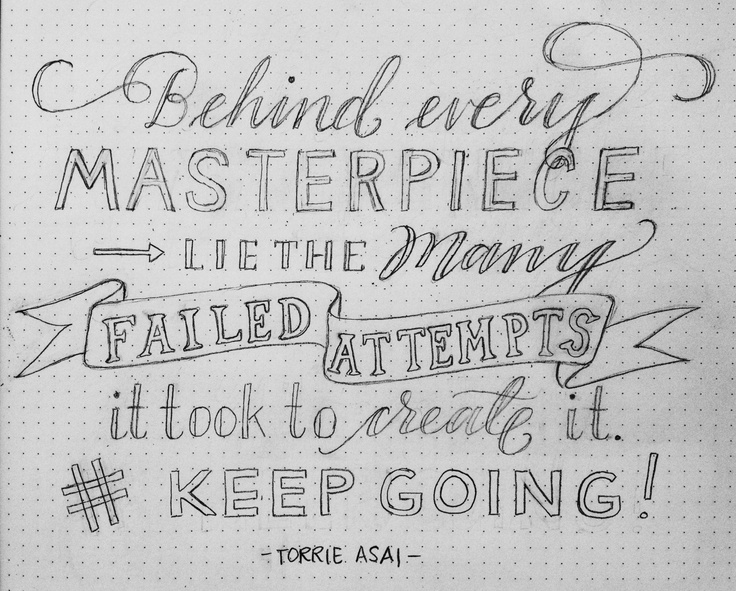 Behind every
MASTERPIECE
LIE THE Many
FAILED ATTEMPTS
it took to create it.
# KEEP GOING!
-TORRIE ASAI-